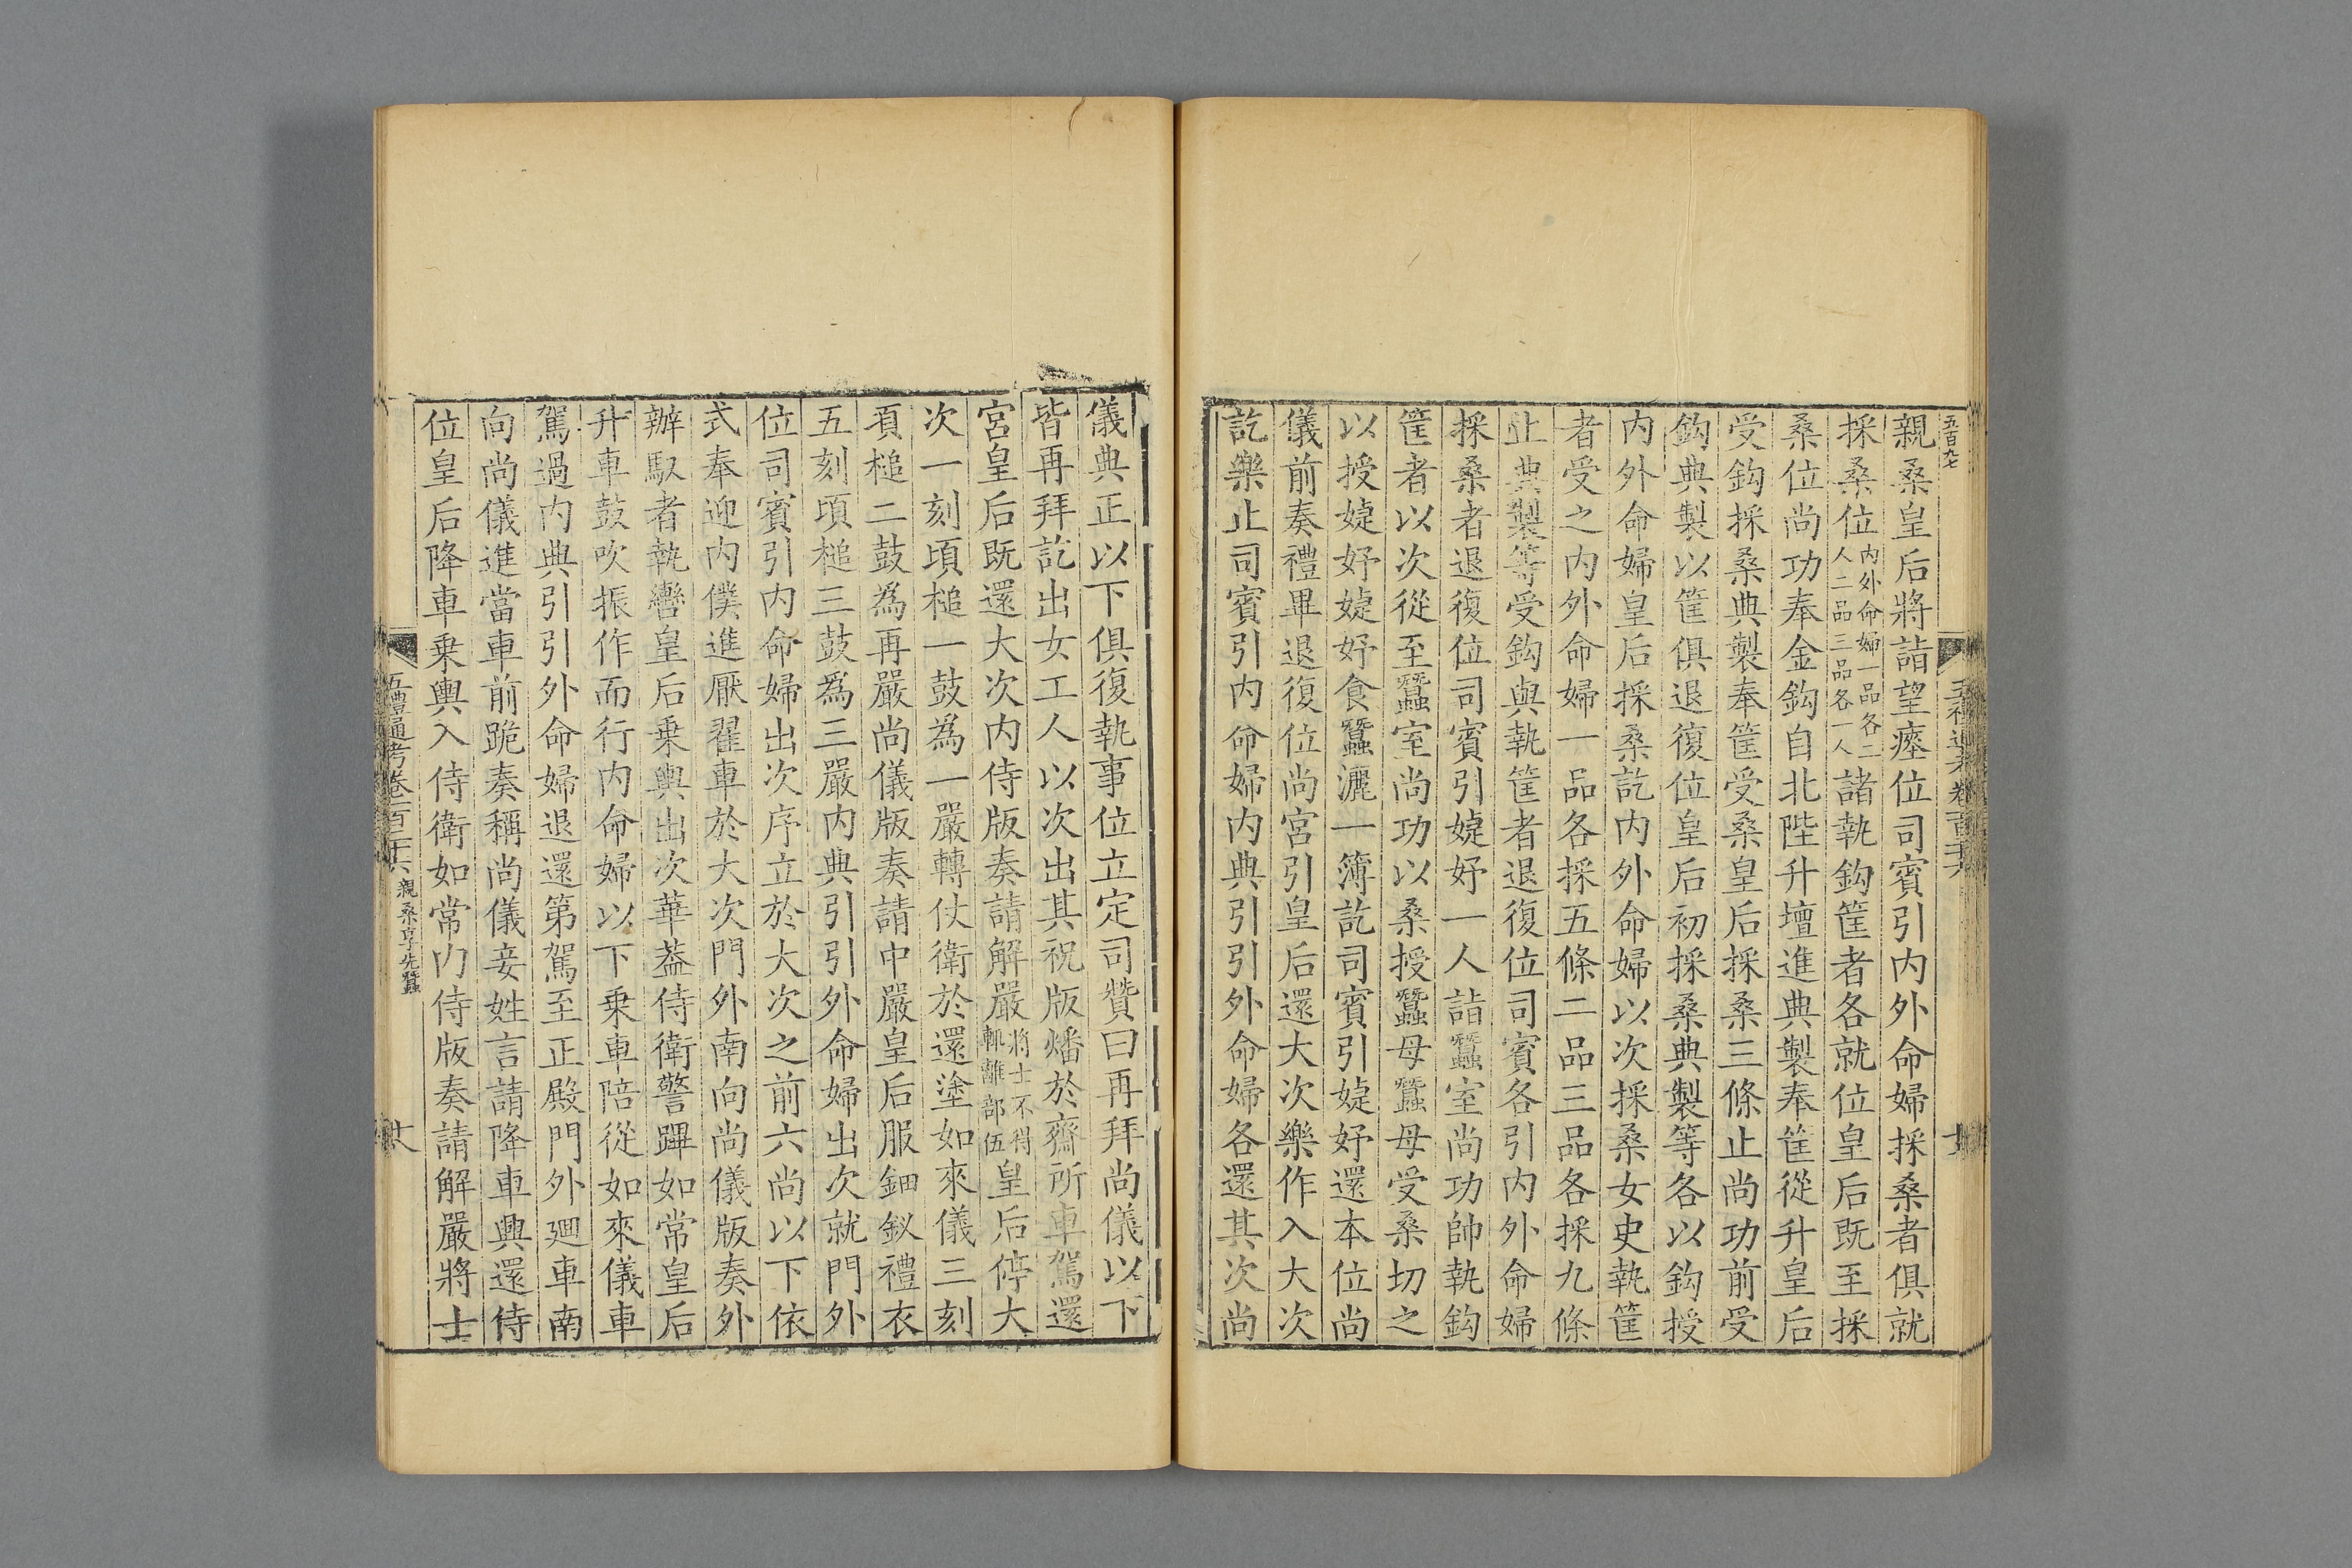 五百九七
親桑皇后將詣望瘞位司賓引内外命婦採桑者俱就
採桑位内外命婦一品各二人二品三品各一人諸執鈎筐者各就位皇后既至採
桑位尚功奉金鈎自北陛升壇進典製奉筐從升皇后
受鈎採桑典製奉筐受桑皇后採桑三條止尚功前受
鈎典製以筐俱退復位皇后初採桑典製等各以鈎授
内外命婦皇后採桑訖内外命婦以次採桑女史執筐
者受之内外命婦一品各採五條二品三品各採九條
止典製等受鈎與執筐者退復位司賓各引内外命婦
採桑者退復位司賓引婕妤一人詣蠶室尚功帥執鈎
筐者以次從至蠶室尚功以桑授蠶母蠶母受桑切之
以授婕妤婕妤食蠶灑一簿訖司賓引婕妤還本位尚
儀前奏禮畢退復位尚宮引皇后還大次樂作入大次
訖樂止司賓引内命婦内典引引外命婦各還其次尚
儀典正以下俱復執事位立定司贊曰再拜尚儀以下
皆再拜訖出女工人以次出其祝版燔於齊所車駕還
宮皇后既還大次内侍版奏請解嚴將士不得輒離部伍皇后停大
次一刻頃槌一鼓為一嚴轉仗衛於還塗如來儀三刻
頃槌二鼓為再嚴尚儀版奏請中嚴皇后服鈿釵禮衣
五刻頃槌三鼓為三嚴内典引引外命婦出次就門外
位司賓引内命婦出次序立於大次之前六尚以下依
式奉迎内僕進厭翟車於大次門外南向尚儀版奏外
辦馭者執轡皇后乗輿出次華葢侍衛警蹕如常皇后
升車鼓吹振作而行内命婦以下乗車陪從如來儀車
駕過内典引引外命婦退還第駕至正殿門外廻車南
向尚儀進當車前跪奏稱尚儀妾姓言請降車興還侍
位皇后降車乗輿入侍衛如常内侍版奏請解嚴將士
五禮通考卷一百二十六 親桑享先蠶